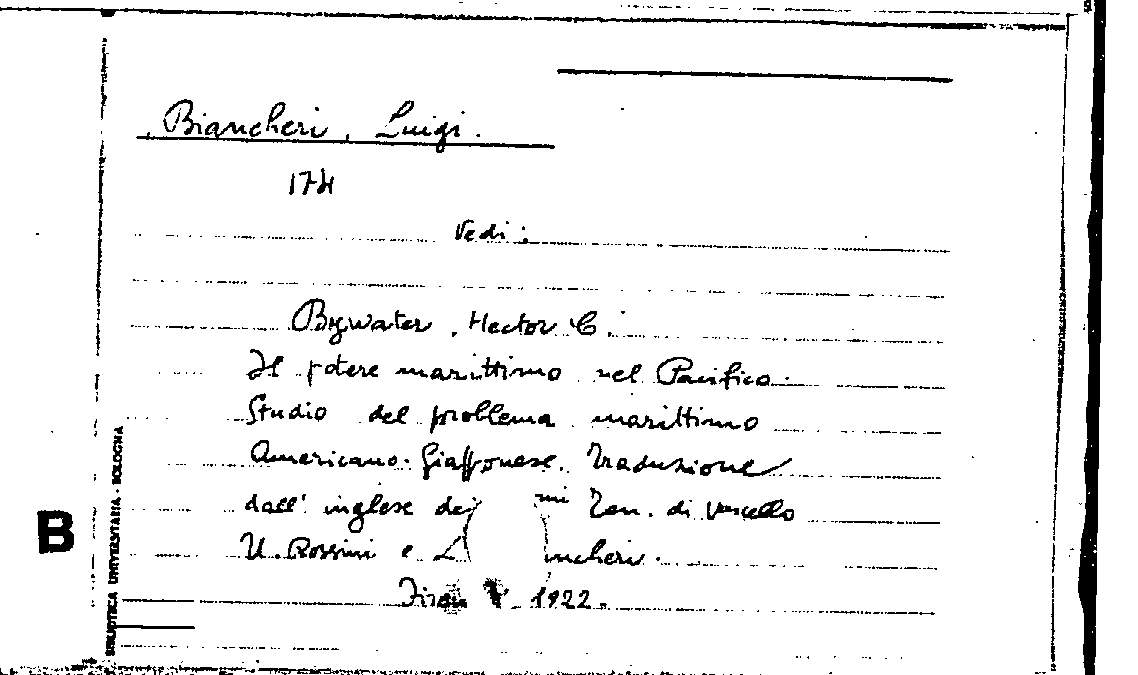 Biancheri, Luigi.
174
Vedi:
Bywater, Hector C.
Il potere marittimo nel Pacifico.
Studio del problema marittimo
Americano-Giapponese. Traduzione
dall'inglese dei Ten. di Vascello
U. Rossini e L ncheri.
1922.
B
BIBLIOTECA UNIVERSITARIA - BOLOGNA